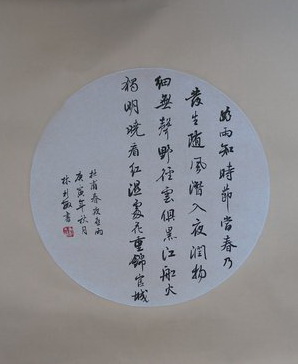 好雨知時節當春乃
發生随風潛入夜潤物
細無聲野徑雲俱黑江船火
獨明曉看紅濕處花重錦官城
杜甫春夜喜雨
庚寅年秋月
林利敏書